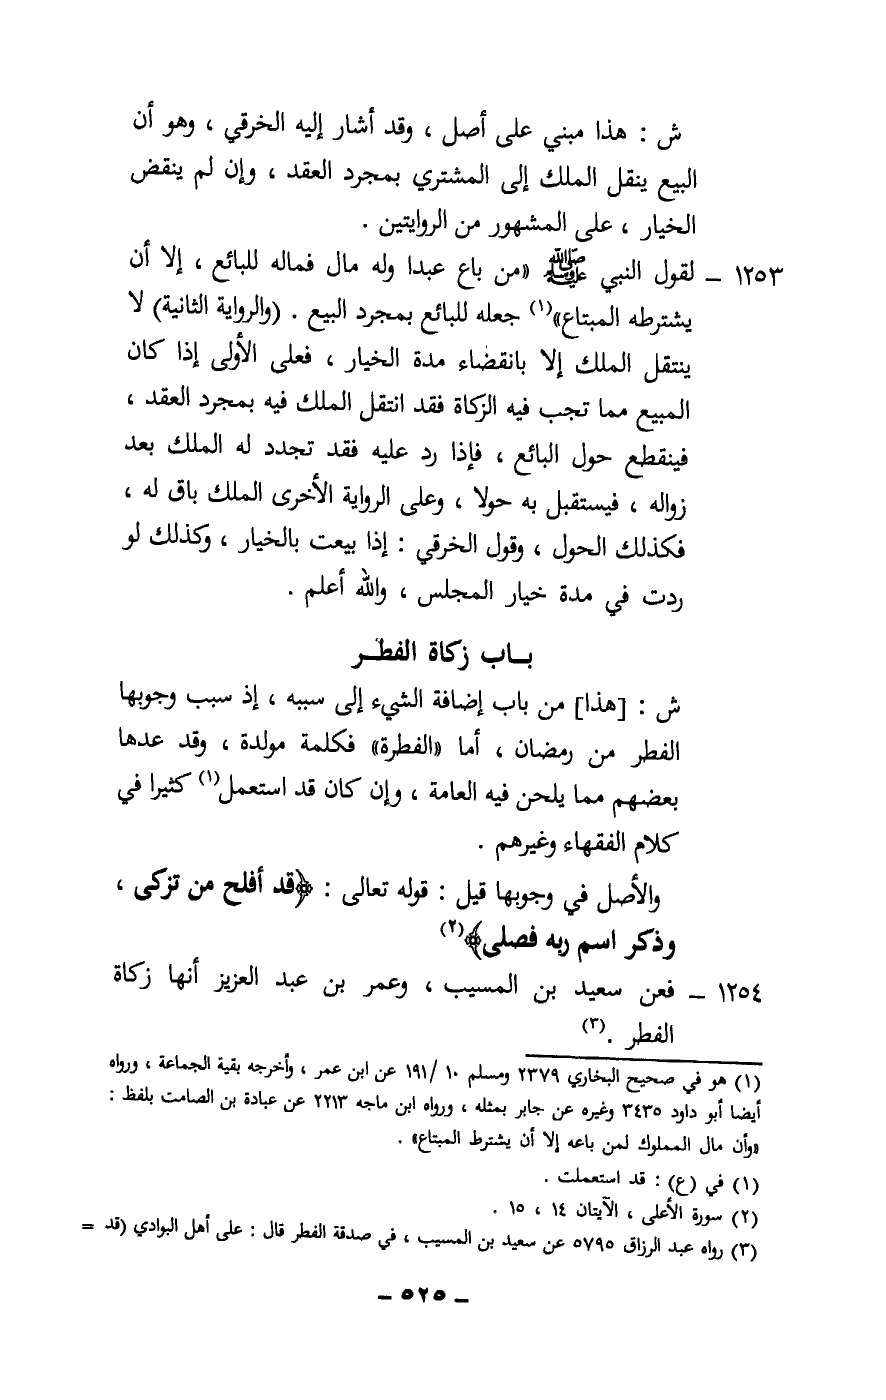 ش : هذا مبني على أصل ، وقد أشار إليه الخرقي ، وهو أن
البيع ينقل الملك إلى المشتري بمجرد العقد ، وإن لم ينقض
الخيار ، على المشهور من الروايتين .
١٢٥٣ – لقول النبي ﷺ «من باع عبدا وله مال فماله للبائع ، إلا أن
يشترطه المبتاع»(١) جعله للبائع بمجرد البيع . (والرواية الثانية) لا
ينتقل الملك إلا بانقضاء مدة الخيار ، فعلى الأولى إذا كان
المبيع مما تجب فيه الزكاة فقد انتقل الملك فيه بمجرد العقد ،
فينقطع حول البائع ، فإذا رد عليه فقد تجدد له الملك بعد
زواله ، فيستقبل به حولا ، وعلى الرواية الأخرى الملك باق له ،
فكذلك الحول ، وقول الخرقي : إذا بيعت بالخيار ، وكذلك لو
ردت في مدة خيار المجلس ، والله أعلم .
بـاب زكاة الفطـر
ش : [هذا] من باب إضافة الشيء إلى سببه ، إذ سبب وجوبها
الفطر من رمضان ، أما «الفطرة» فكلمة مولدة ، وقد عدها
بعضهم مما يلحن فيه العامة ، وإن كان قد استعمل(١) كثيرا في
كلام الفقهاء وغيرهم .
والأصل في وجوبها قيل : قوله تعالى : ﴿قد أفلح من تزكى ،
وذكر اسم ربه فصلى﴾(٢)
١٢٥٤ – فعن سعيد بن المسيب ، وعمر بن عبد العزيز أنها زكاة
الفطر .(٣)
(١) هو في صحيح البخاري ٢٣٧٩ ومسلم ١٠ /١٩١ عن ابن عمر ، وأخرجه بقية الجماعة ، ورواه
أيضا أبو داود ٣٤٣٥ وغيره عن جابر بمثله ، ورواه ابن ماجه ٢٢١٣ عن عبادة بن الصامت بلفظ :
«وأن مال المملوك لمن باعه إلا أن يشترط المبتاع» .
(١) في (ع) : قد استعملت .
(٢) سورة الأعلى ، الآيتان ١٤ ، ١٥ .
(٣) رواه عبد الرزاق ٥٧٩٥ عن سعيد بن المسيب ، في صدقة الفطر قال : على أهل البوادي (قد =
– ٥٢٥ –